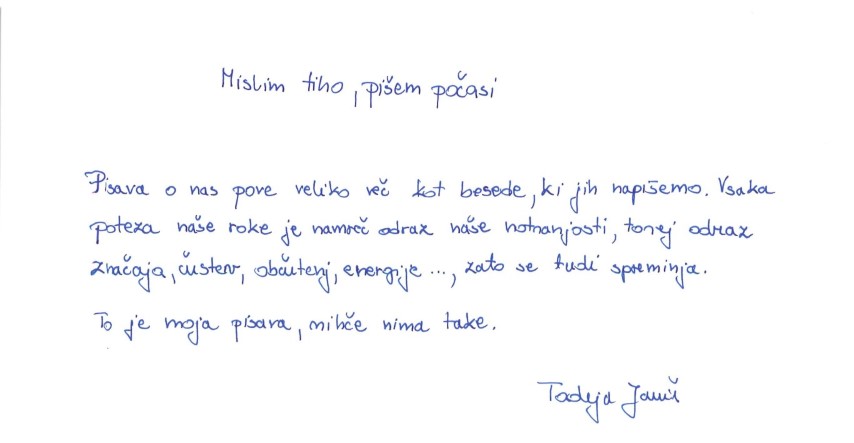 Mislim tiho, pišem počasi
Pisava o nas pove veliko več kot besede, ki jih napišemo. Vsaka
poteza naše roke je namreč odraz naše notranjosti, torej odraz
značaja, čustev, občutenj, energije ..., zato se tudi spreminja.
To je moja pisava, nihče nima take.
Tadeja